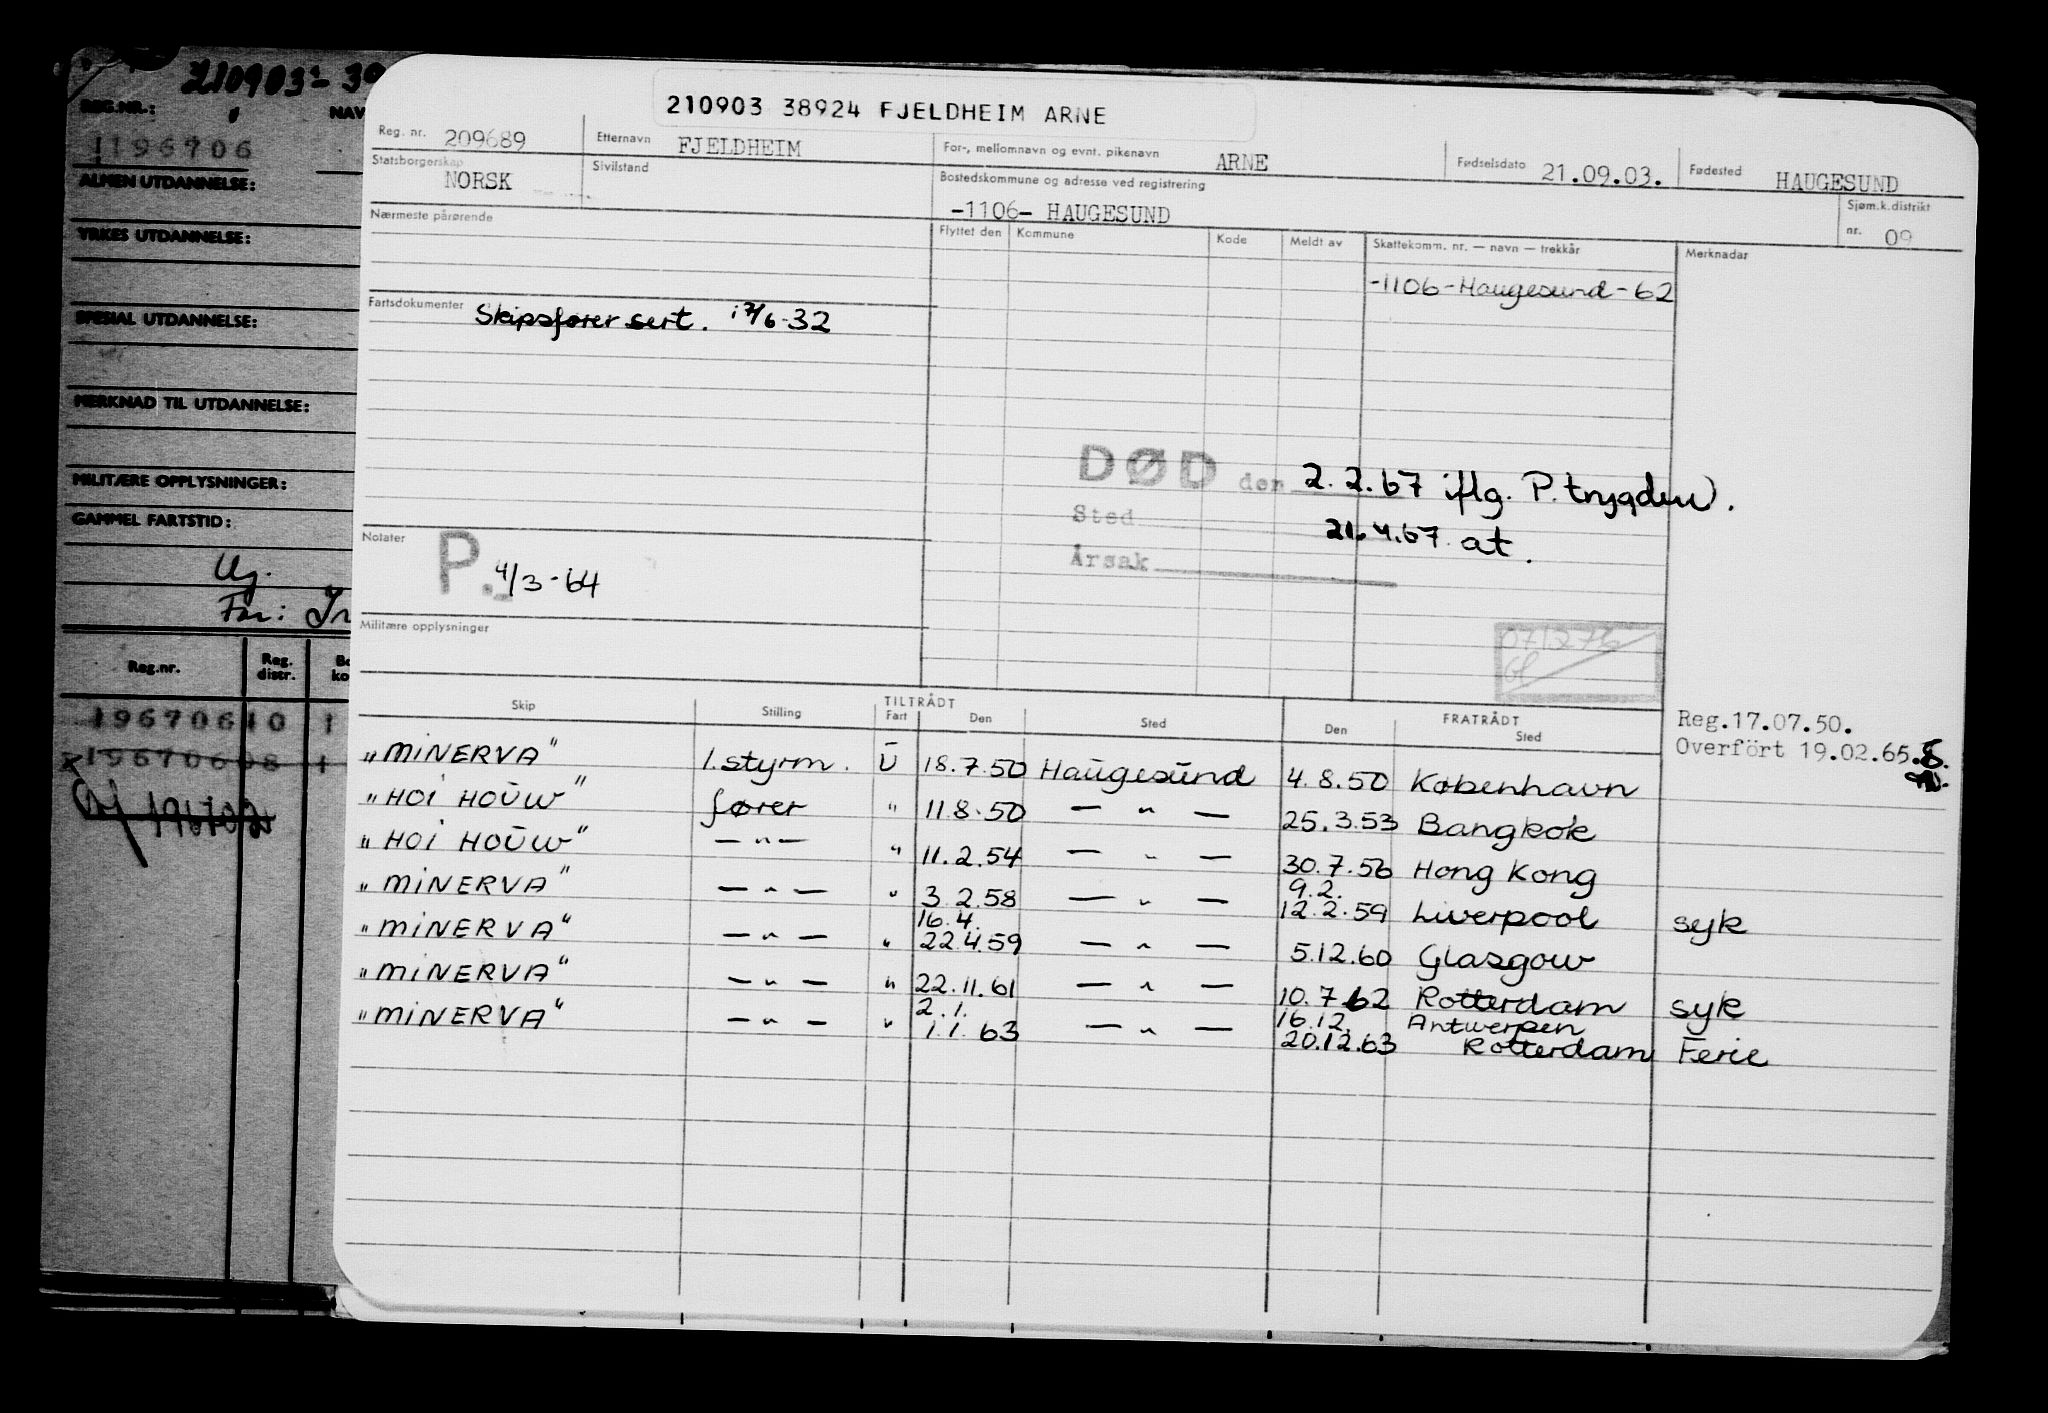 210903 - 39
REG.NR.:
NAV
1196706
ALMEN UTDANNELSE:
YRKES UTDANNELSE:
SPESIAL UTDANNELSE:
MERKNAD TIL UTDANNELSE:
MILITÆRE OPPLYSNINGER:
GAMMEL FARTSTID:
Far:
Reg.nr.
Reg. distr.
Bo
ko
196706 10 1
19670608 1
210903 38924 FJELDHEIM ARNE
Reg. nr. 209689 Etternavn FJELDHEIM For-, mellomnavn og evnt. pikenavn ARNE Fødselsdato 21.09.03. Fødested HAUGESUND
Statsborgerskap NORSK Sivilstand Bostedskommune og adresse ved registrering -1106- HAUGESUND Sjøm.k.distrikt nr. 09
Nærmeste pårørende Flyttet den Kommune Kode Meldt av Skattekomm. nr. — navn — trekkår Merknadar
-1106-Haugesund-62
Fartsdokumenter Skipsfører sert. 17/6-32
DØD den 2.2.67 iflg. P.trygden.
Sted 21.4.67 at.
Årsak
Notater P. 4/3-64
Militære opplysninger
071276
Reg.17.07.50.
Overfört 19.02.65.
Skip Stilling TILTRÅDT Fart Den Sted FRATRÅDT Den Sted
"MINERVA" 1.styrm. U 18.7.50 Haugesund 4.8.50 København
"HOI HOUW" fører " 11.8.50 — " — 25.3.53 Bangkok
"HOI HOUW" — " — " 11.2.54 — " — 30.7.56 Hong Kong
"MINERVA" — " — " 3.2.58 — " — 9.2. 12.2.59 Liverpool syk
"MINERVA" — " — " 16.4. 22.4.59 — " — 5.12.60 Glasgow
"MINERVA" — " — " 22.11.61 — " — 10.7.62 Rotterdam syk
"MINERVA" — " — " 2.1. 1.1.63 — " — 16.12. Antwerpen
20.12.63 Rotterdam Ferie